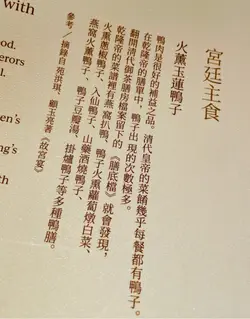 with
ood.
erors
l.
en's
ng's
to
宮廷主食
火薰玉蓮鴨子
鴨肉是很好的補益之品。清代皇帝的菜餚幾乎每餐都有鴨子。
在乾隆帝的膳單中，鴨子出現的次數極多。
翻閱清代御茶膳房檔案留下的《膳底檔》就會發現，
乾隆帝的菜譜裡有燕窩扒鴨、鴨子火熏蘿蔔燉白菜、
火熏蔥椒鴨子、入仙鴨子、山藥酒燒鴨子、
燕窩火熏鴨子、鴨子豆瓣湯、掛爐鴨子等多種鴨膳。
參考／摘錄自苑洪琪、顧玉亮著《故宮宴》